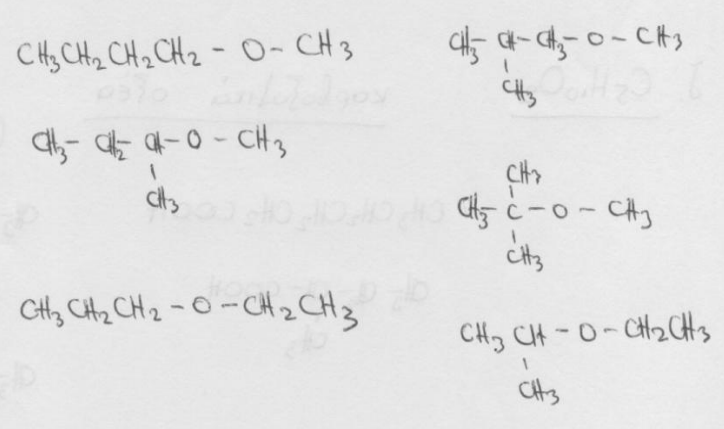 CH3CH2CH2CH2 - O - CH3
CH3 - CH - CH3 - O - CH3
CH3
CH3 - CH2 - CH - O - CH3
CH3
CH3
CH3 - C - O - CH3
CH3
CH3CH2CH2 - O - CH2CH3
CH3 CH - O - CH2CH3
CH3